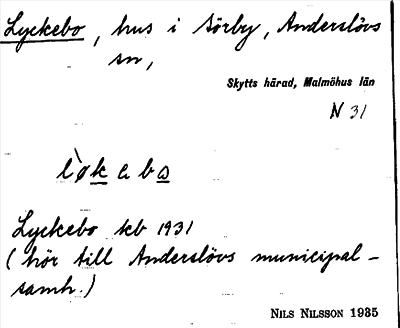 Lyckebo, hus i sörby, Anderslövs
sn,
Skytts härad, Malmöhus län
N 31
l`økabo
Lyckebo kb 1931
(hör till Anderslövs municipal-
samh.)
NILS NILSSON 1935